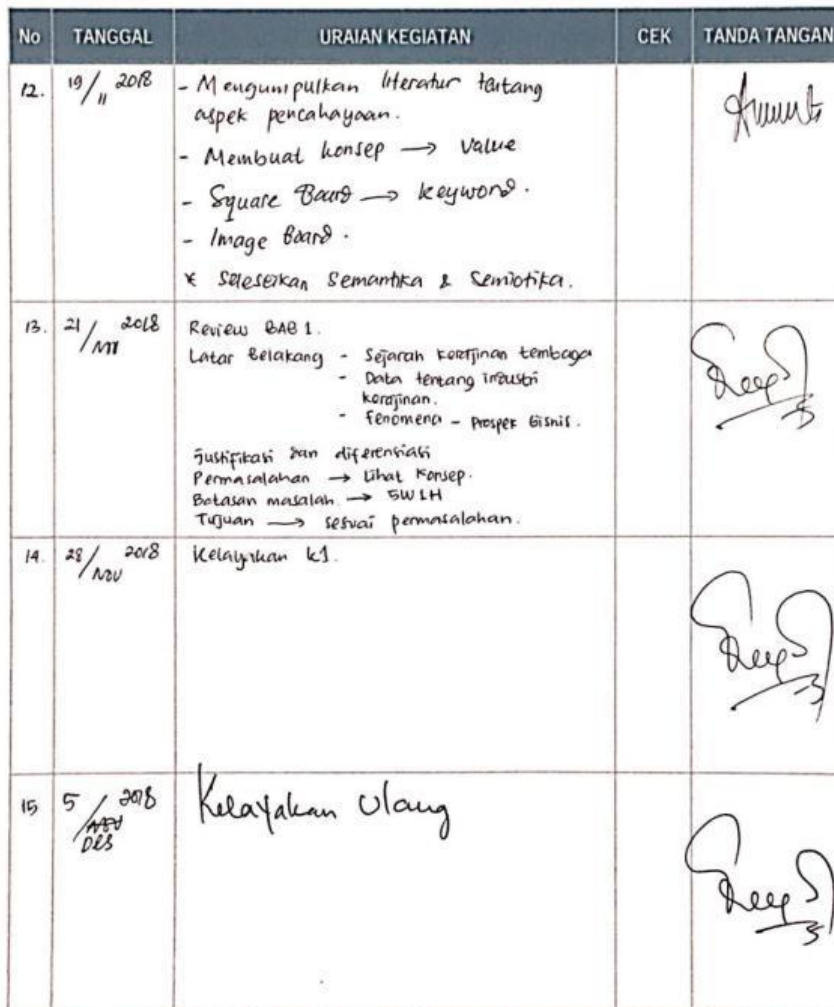 No TANGGAL URAIAN KEGIATAN CEK TANDA TANGAN
12. 19/11 2018 - Mengumpulkan literatur tentang
aspek pencahayaan.
- Membuat konsep → Value
- Square Board → keyword.
- Image Board.
* Seleseikan Semantika & Semiotika.
13. 21/ 2018 Review BAB 1.
Latar Belakang - Sejarah kerajinan tembaga
- Data tentang industri
kerajinan.
- Fenomena - Prospek Bisnis.
Justifikasi dan diferensiasi
Permasalahan → Lihat Konsep.
Batasan masalah → 5W1H
Tujuan → sesuai permasalahan.
14. 28/Nov 2018 Kelayakan k1.
15 5/Des 2018 Kelayakan Ulang